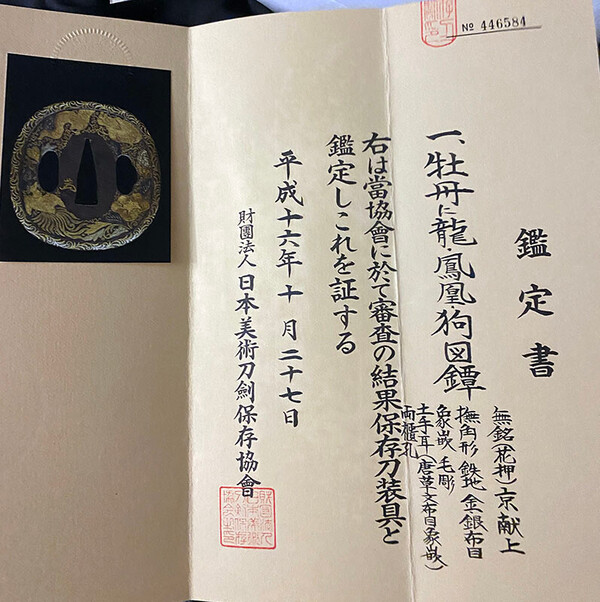 № 446584
鑑定書
一、牡丹に龍・鳳凰狗図鐔
無銘(花押)京献上
撫角形 鉄地 金銀布目
象嵌 毛彫
土手耳(唐草文布目象嵌)
両櫃孔
右は當協會に於て審査の結果保存刀装具と
鑑定しこれを証する
平成十六年十月二十七日
財團法人日本美術刀劍保存協會